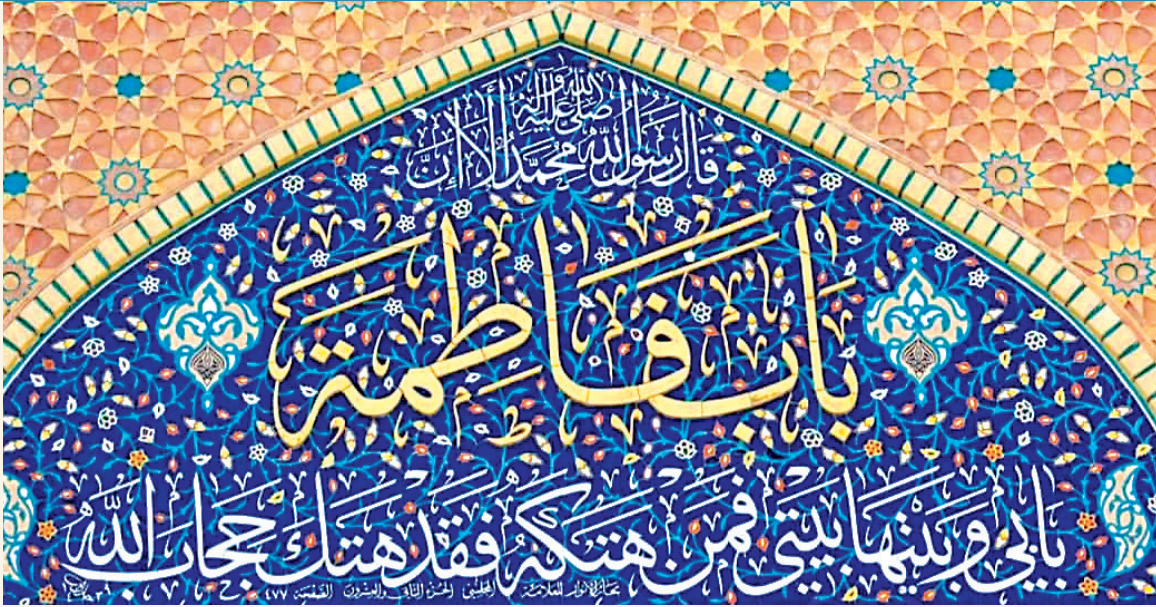 قَالَ رَسُولُ اللهِ مُحَمَّدٌ صَلَّى اللهُ عَلَيْهِ وَآلِهِ أَلَا إِنَّ
بَابَ فَاطِمَةَ
بَابِي وَبَيْتَهَا بَيْتِي فَمَنْ هَتَكَهُ فَقَدْ هَتَكَ حِجَابَ اللَّهِ
بحار الأنوار للعلامة المجلسي الجزء الثاني والعشرون الصفحة ٤٧٧